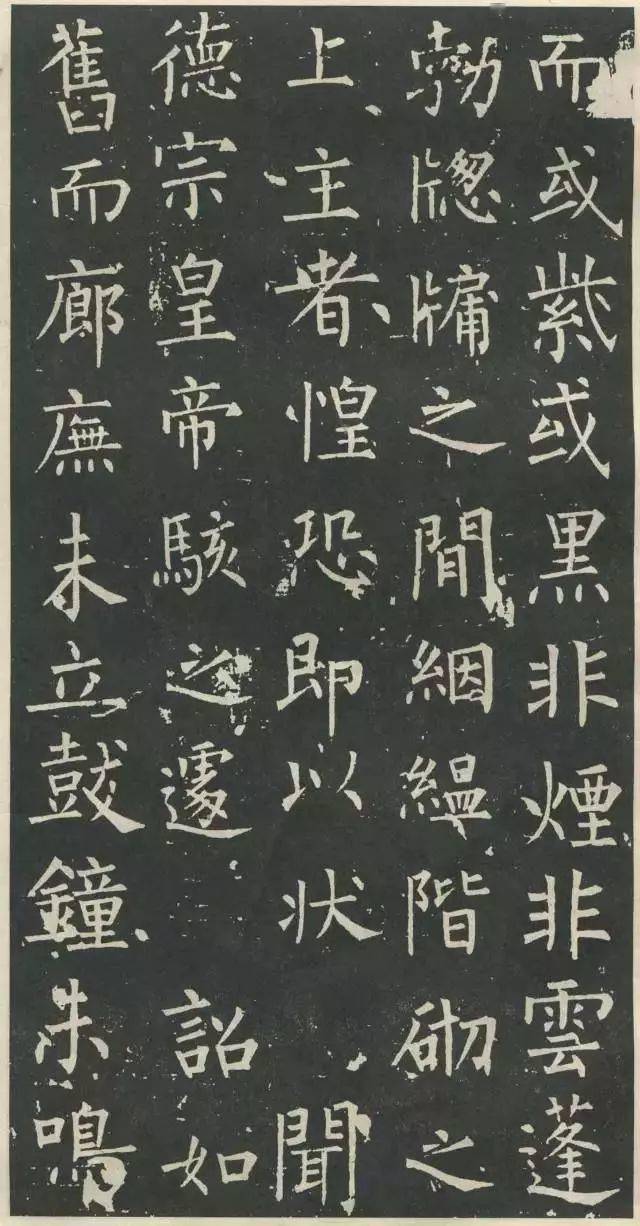 而或紫或黒非煙非雲蓬
勃牕牖之間絪縕階砌之
上主者惶恐即以状聞
德宗皇帝駭之遽詔如
舊而廊廡未立鼔鐘未鳴